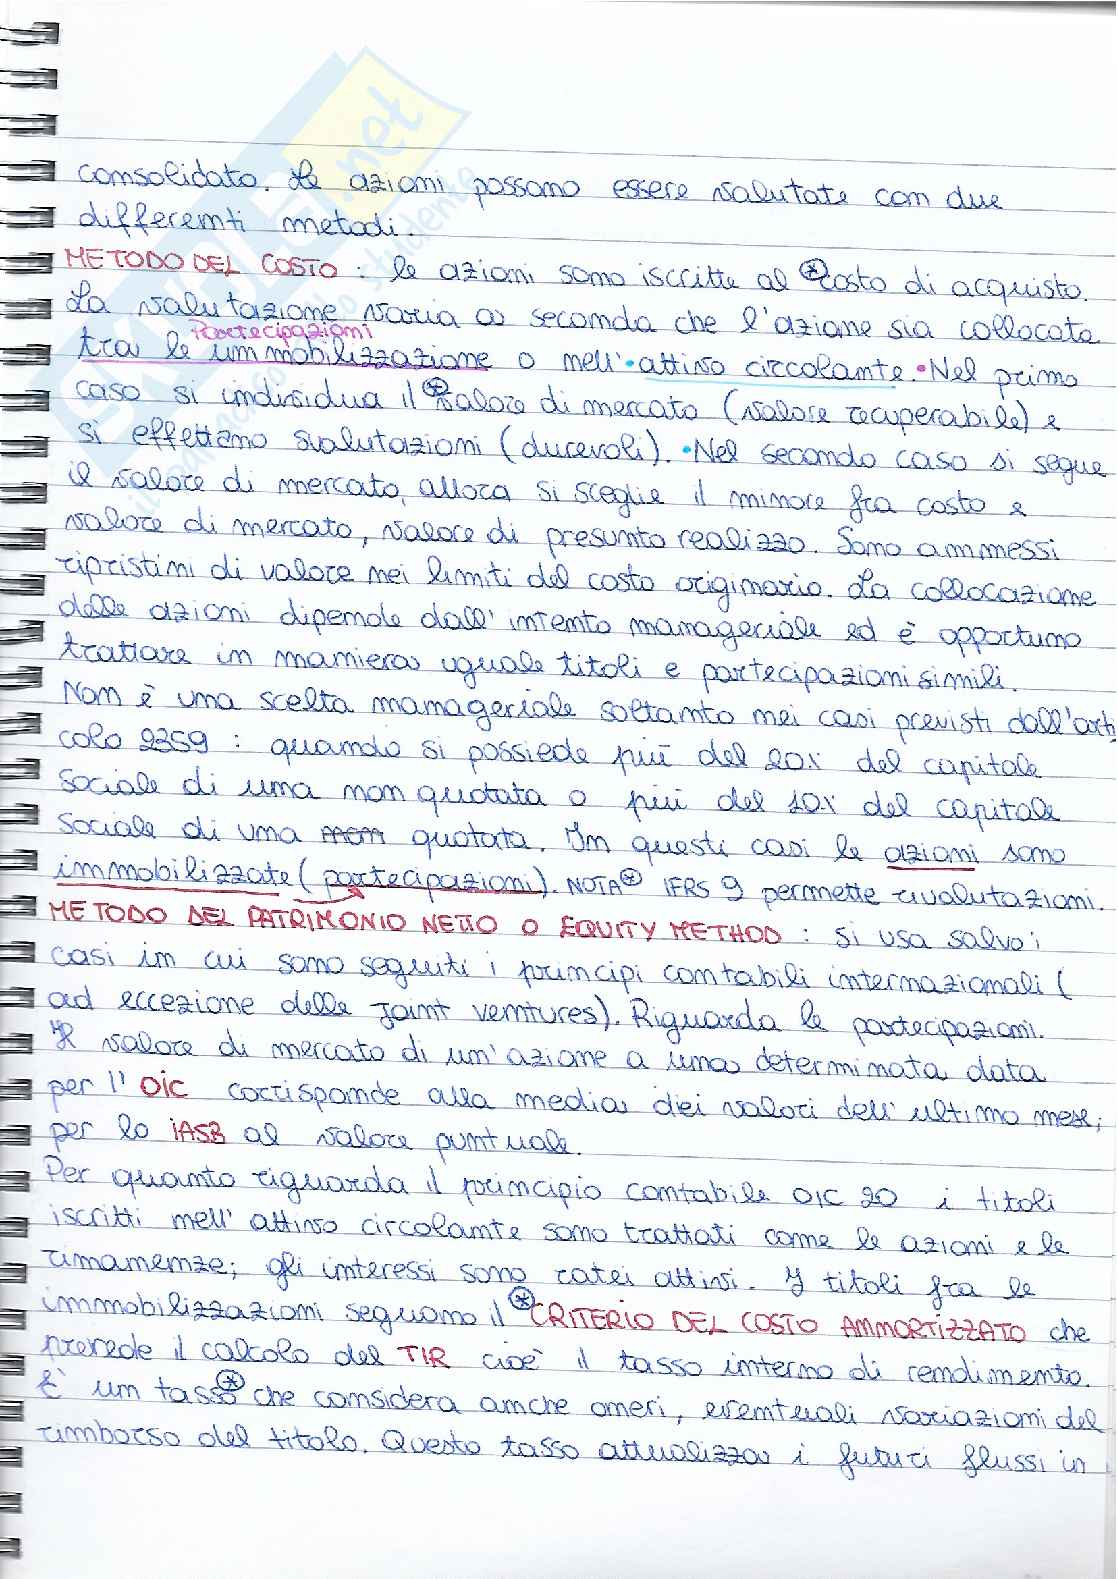 consolidato. Le azioni possono essere valutate con due
differenti metodi.
METODO DEL COSTO : le azioni sono iscritte al costo di acquisto.
La valutazione varia a seconda che l'azione sia collocata
partecipazioni
tra le immobilizzazione o nell'•attivo circolante.•Nel primo
caso si individua il valore di mercato (valore recuperabile) e
si effettano svalutazioni (durevoli). •Nel secondo caso si segue
il valore di mercato, allora si sceglie il minore fra costo e
valore di mercato, valore di presunto realizzo. Sono ammessi
ripristini di valore nei limiti del costo originario. La collocazione
delle azioni dipende dall'intento manageriale ed è opportuno
trattare in maniera uguale titoli e partecipazioni simili.
Non è una scelta manageriale soltanto nei casi previsti dall'arti
colo 2359 : quando si possiede più del 20% del capitale
sociale di una non quotata o più del 10% del capitale
sociale di una non quotata. In questi casi le azioni sono
immobilizzate (partecipazioni). NOTA* IFRS 9 permette rivalutazioni.
METODO DEL PATRIMONIO NETTO O EQUITY METHOD : si usa salvo i
casi in cui sono seguiti i principi contabili internazionali (
ad eccezione delle Joint ventures). Riguarda le partecipazioni.
Il valore di mercato di un'azione a una determinata data
per l'OIC corrisponde alla media dei valori dell'ultimo mese;
per lo IASB al valore puntuale.
Per quanto riguarda il principio contabile OIC 20 i titoli
iscritti nell'attivo circolante sono trattati come le azioni e le
rimanenze; gli interessi sono ratei attivi. I titoli fra le
immobilizzazioni seguono il *CRITERIO DEL COSTO AMMORTIZZATO che
prevede il calcolo del TIR cioè il tasso interno di rendimento.
È un tasso* che considera anche oneri, eventuali variazioni del
rimborso del titolo. Questo tasso attualizza i futuri flussi in